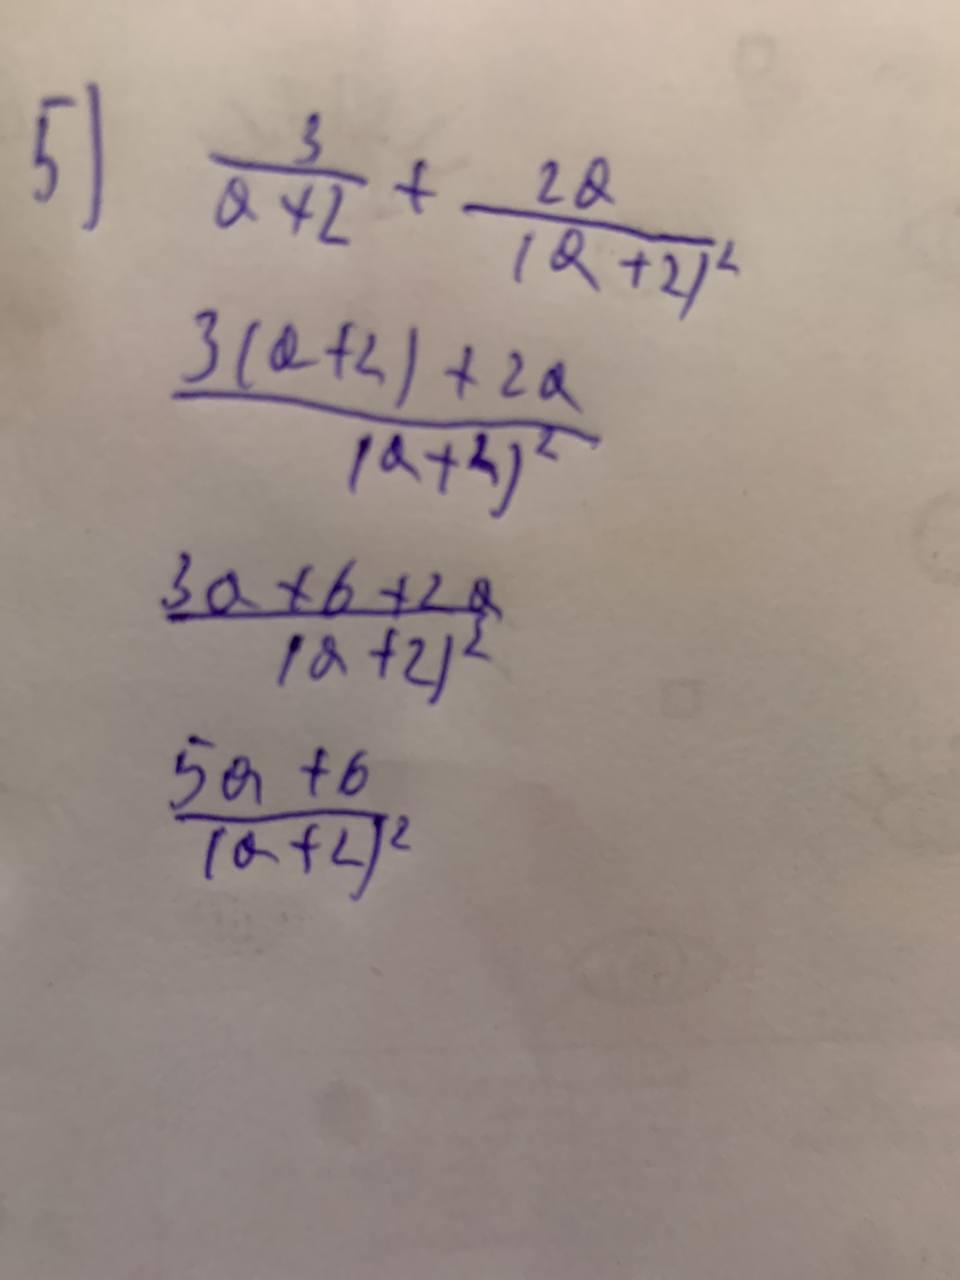 5) 3/(a+2) + 2a/(a+2)²
3(a+2)+2a/(a+2)²
3a+6+2a/(a+2)²
5a+6/(a+2)²